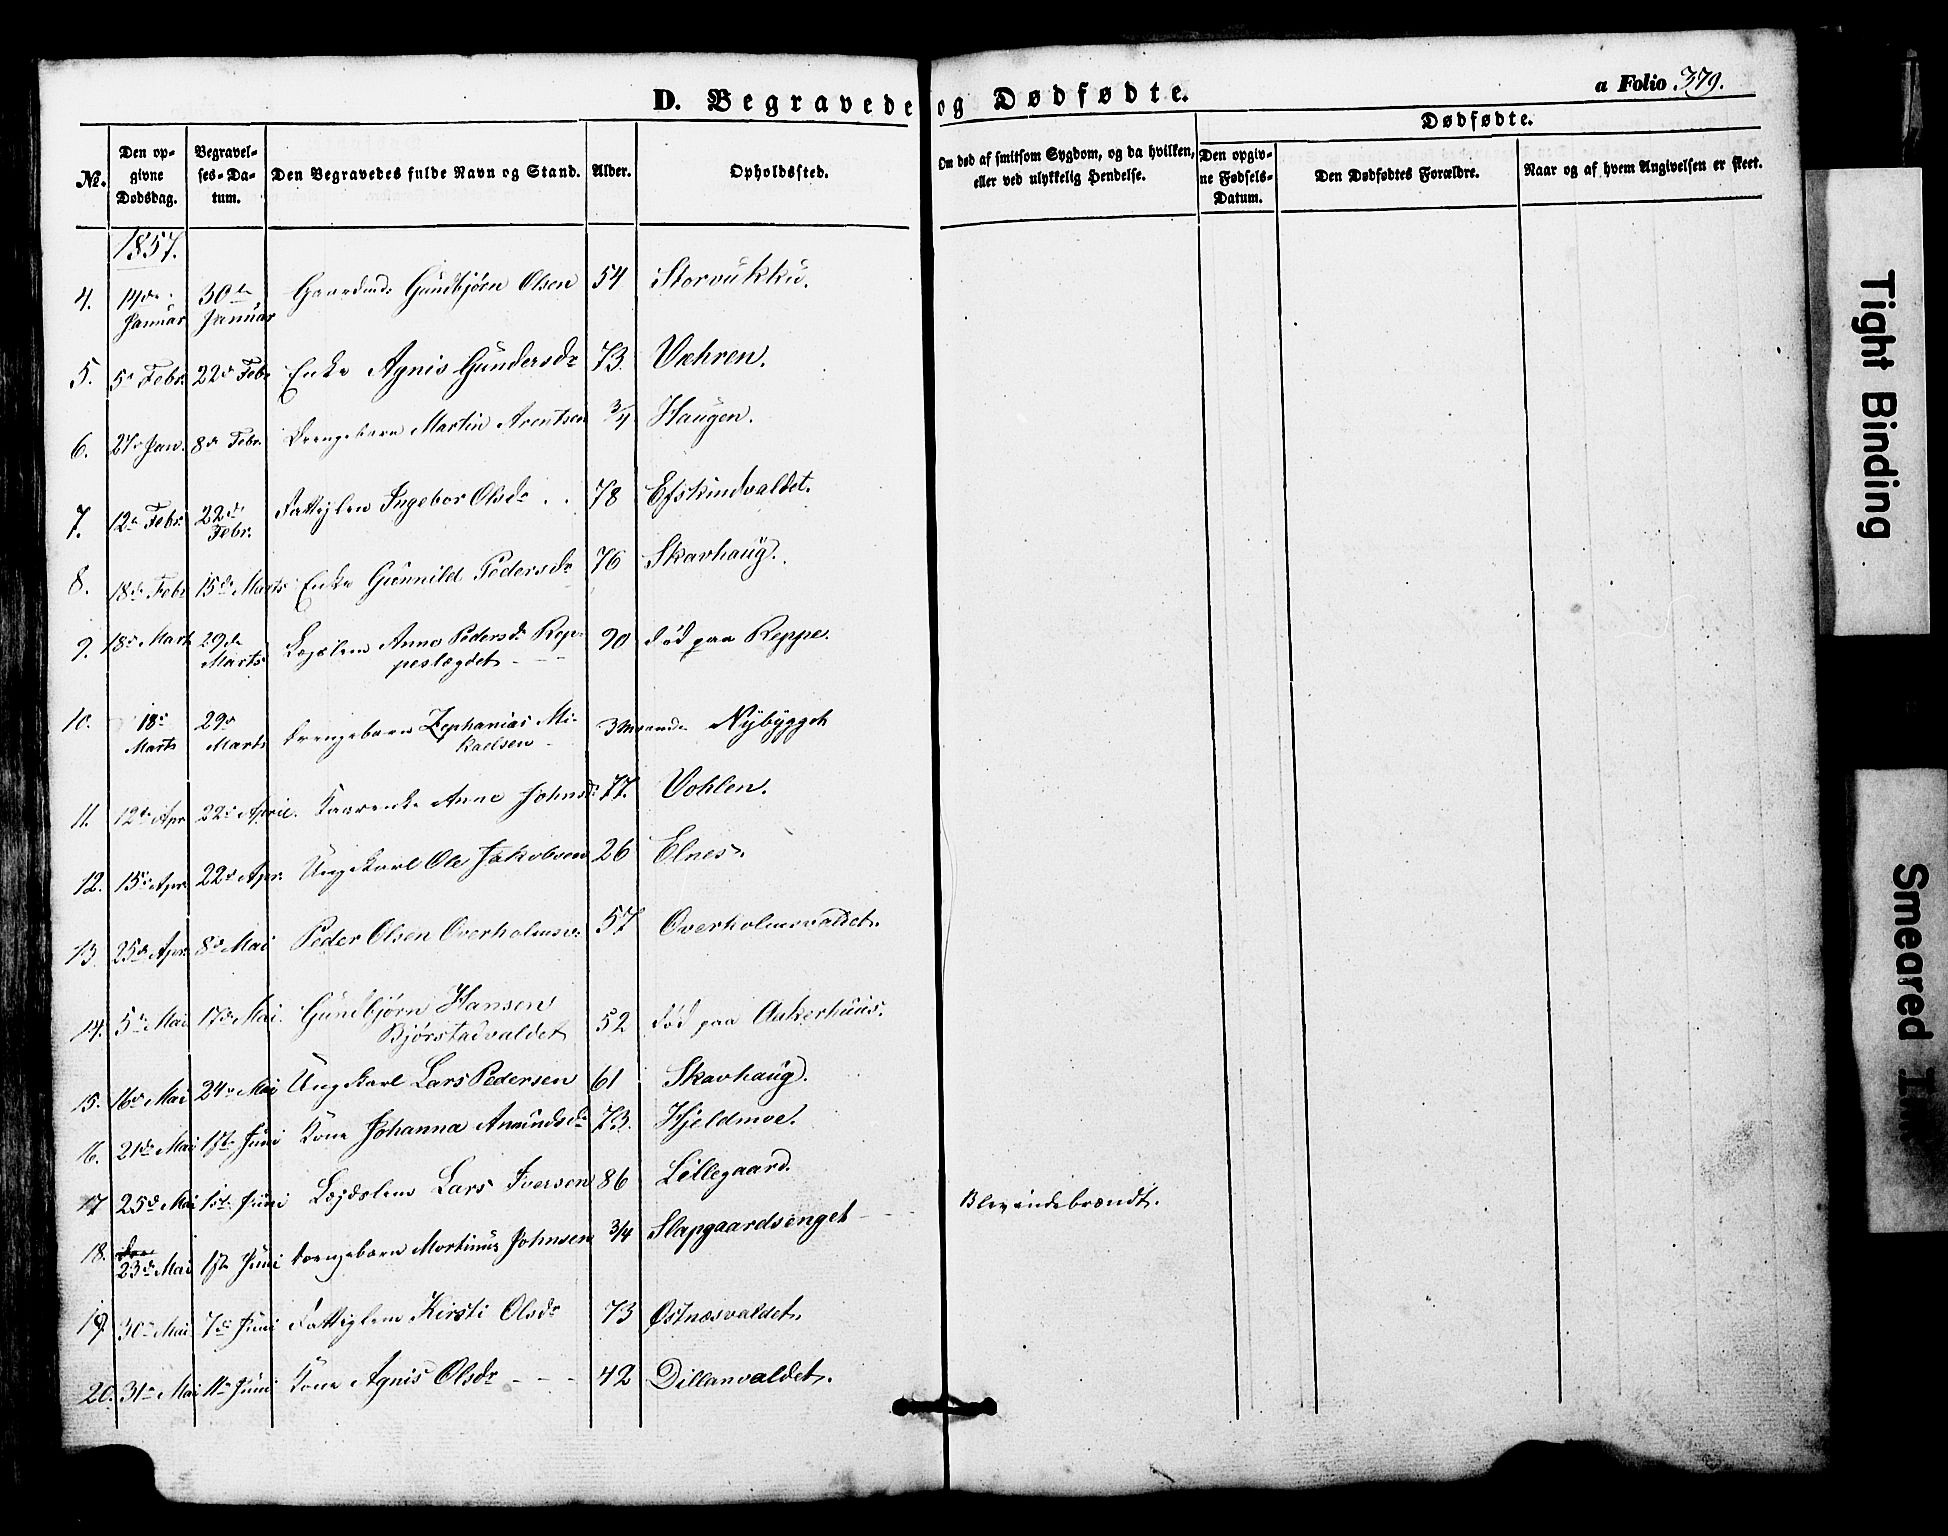 D. Begravede og Dødfødte.
a Folio 379.
Dødfødte.
No. Den opgivne Dødsdag. Begravelses-Datum. Den Begravedes fulde Navn og Stand. Alder. Opholdssted. Om død af smitsom Sygdom, og da hvilken, eller ved ulykkelig Hendelse. Den opgivne Fødsels-Datum. Den Dødfødtes Forældre. Naar og af hvem Angivelsen er skeet.
1857.
4. 14de Januar 30te Januar Gaardmd. Gundbjørn Olsen 54 Storvukku.
5. 5e Febr. 22de Feb. Enke Agnis Gundersdr 73. Væhren.
6. 27e Jan. 8de Febr. Drengebarn Martin Arentsen 3/4 Haugen.
7. 12e Febr. 22de Febr. Fattiglem Ingebor Olsdr 78 Efskindvaldet.
8. 18de Febr 15de Marts Enke Gunnild Pedersdr 76 Skavhaug.
9. 18e Mart 29de Marts Anne Pedersdr Reppeslægdet 90 død paa Reppe.
10. 18e Marts 29de Marts Drengebarn Zephanias Mikaelsen 3 Maaneder Nybygget
11. 12e Apr 22de April. Kaarenke Anne Johnsdr 77. Vohlen.
12. 15e Apr. 22de Apr. Ungkarl Ole Jakobsen 26 Elnes.
13. 25de Apr. 8de Mai Peder Olsen Overholmsv. 57 Overholmsvaldet.
14. 5te Mai 17de Mai. Gundbjørn Hansen Bjørstadvaldet 52 død paa Aakerhuus.
15. 16de Mai 24de Mai Ungkarl Lars Pedersen 61 Skavhaug.
16. 21de Mai 1ste Juni Kone Johanna Amundsdr 73. Hjeldmoe.
17 25de Mai 1ste Juni Lægdslem Lars Iversen 86 Lillegaard.
18. 23de Mai 1ste Juni Drengebarn Mortinus Johnsen 3/4 Slapgaardsenget Blev indebrændt.
19. 30te Mai 7de Juni Fattiglem Kirsti Olsdr 73 Østnæsvaldet.
20. 31te Mai 11te Juni Kone Agnis Olsdr 42 Dillanvaldet.
Tight Binding
Smeared